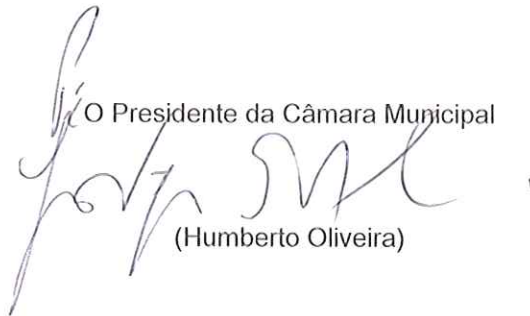 O Presidente da Câmara Municipal
(Humberto Oliveira)